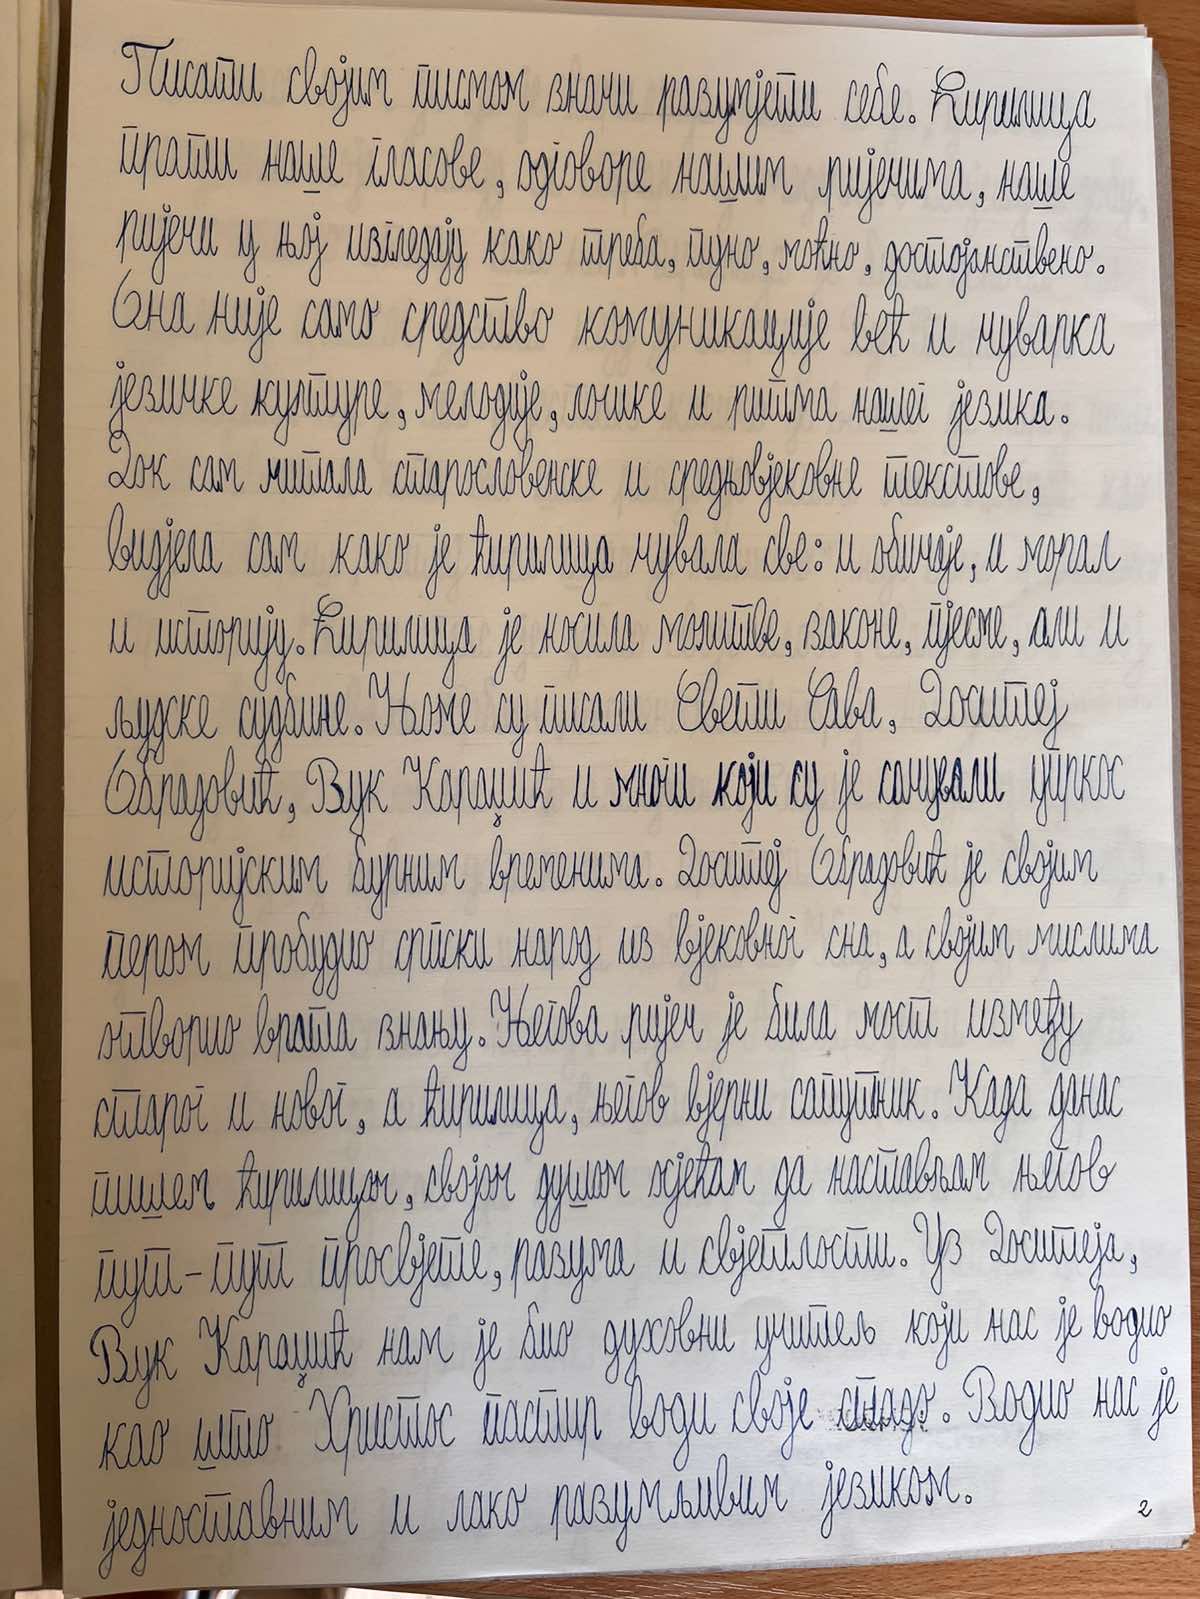 Писати својим писмом значи разумјети себе. Ћирилица
прати наше гласове, одговоре нашим ријечима, наше
ријечи у њој изгледају како треба, пуно, моћно, достојанствено.
Она није само средство комуникације већ и чуварка
језичке културе, мелодије, логике и ритма нашег језика.
Док сам читала старословенске и средњовјековне текстове,
видјела сам како је ћирилица чувала све: и обичаје, и морал
и историју. Ћирилица је носила молитве, законе, пјесме, али и
људске судбине. Њоме су писали Свети Сава, Доситеј
Обрадовић, Вук Караџић и многи који су је сачували упркос
историјским бурним временима. Доситеј Обрадовић је својим
пером пробудио српски народ из вјековног сна, а својим мислима
отворио врата знању. Његова ријеч је била мост између
старог и новог, а ћирилица, његов вјерни сапутник. Када данас
пишем ћирилицом, својом душом осјећам да настављам његов
пут-пут просвјете, разума и свјетлости. Уз Доситеја,
Вук Караџић нам је био духовни учитељ који нас је водио
као што Христос пастир води своје стадо. Водио нас је
једноставним и лако разумљивим језиком.
2